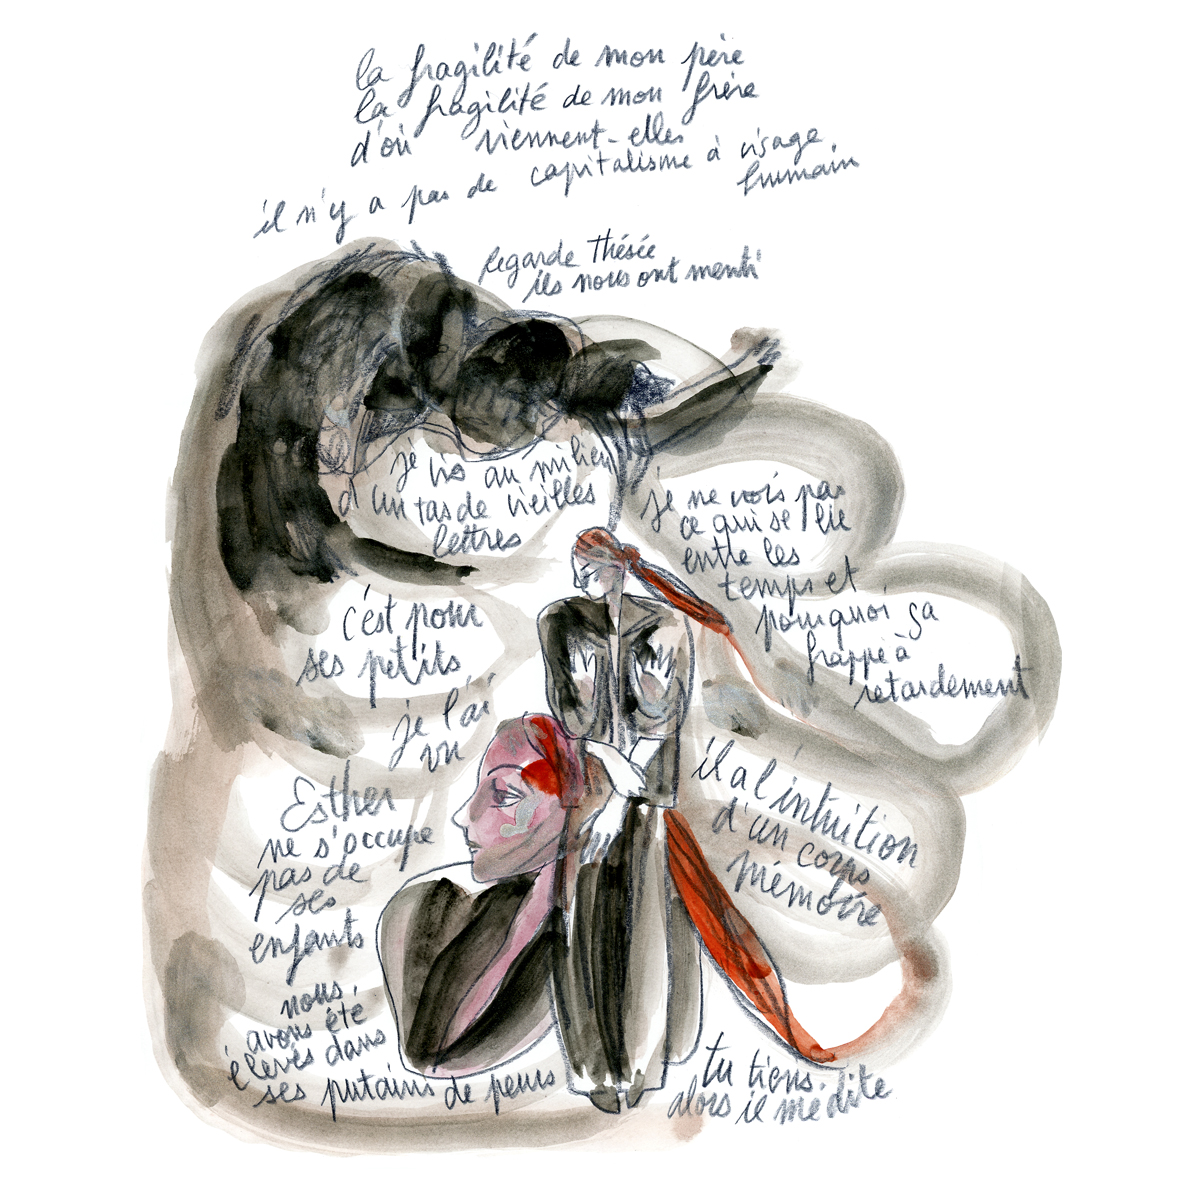 la fragilité de mon père
la fragilité de mon frère
d'où viennent-elles
il n'y a pas de capitalisme à visage
humain
Regarde Thésée
ils nous ont menti
je vis au milieu
d'un tas de vieilles
lettres
je ne vois pas
ce qui se lie
entre les
temps et
pourquoi ça
frappe à
retardement
c'est pour
ses petits
je l'ai
vu
Esther
ne s'occupe
pas de
ses
enfants
nous
avons été
élevés dans
ses putains de peurs
il a l'intuition
d'un corps
mémoire
tu tiens
alors il médite